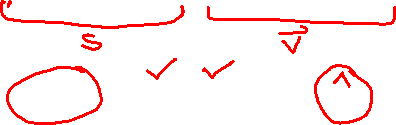 S V
✓ ✓ ^